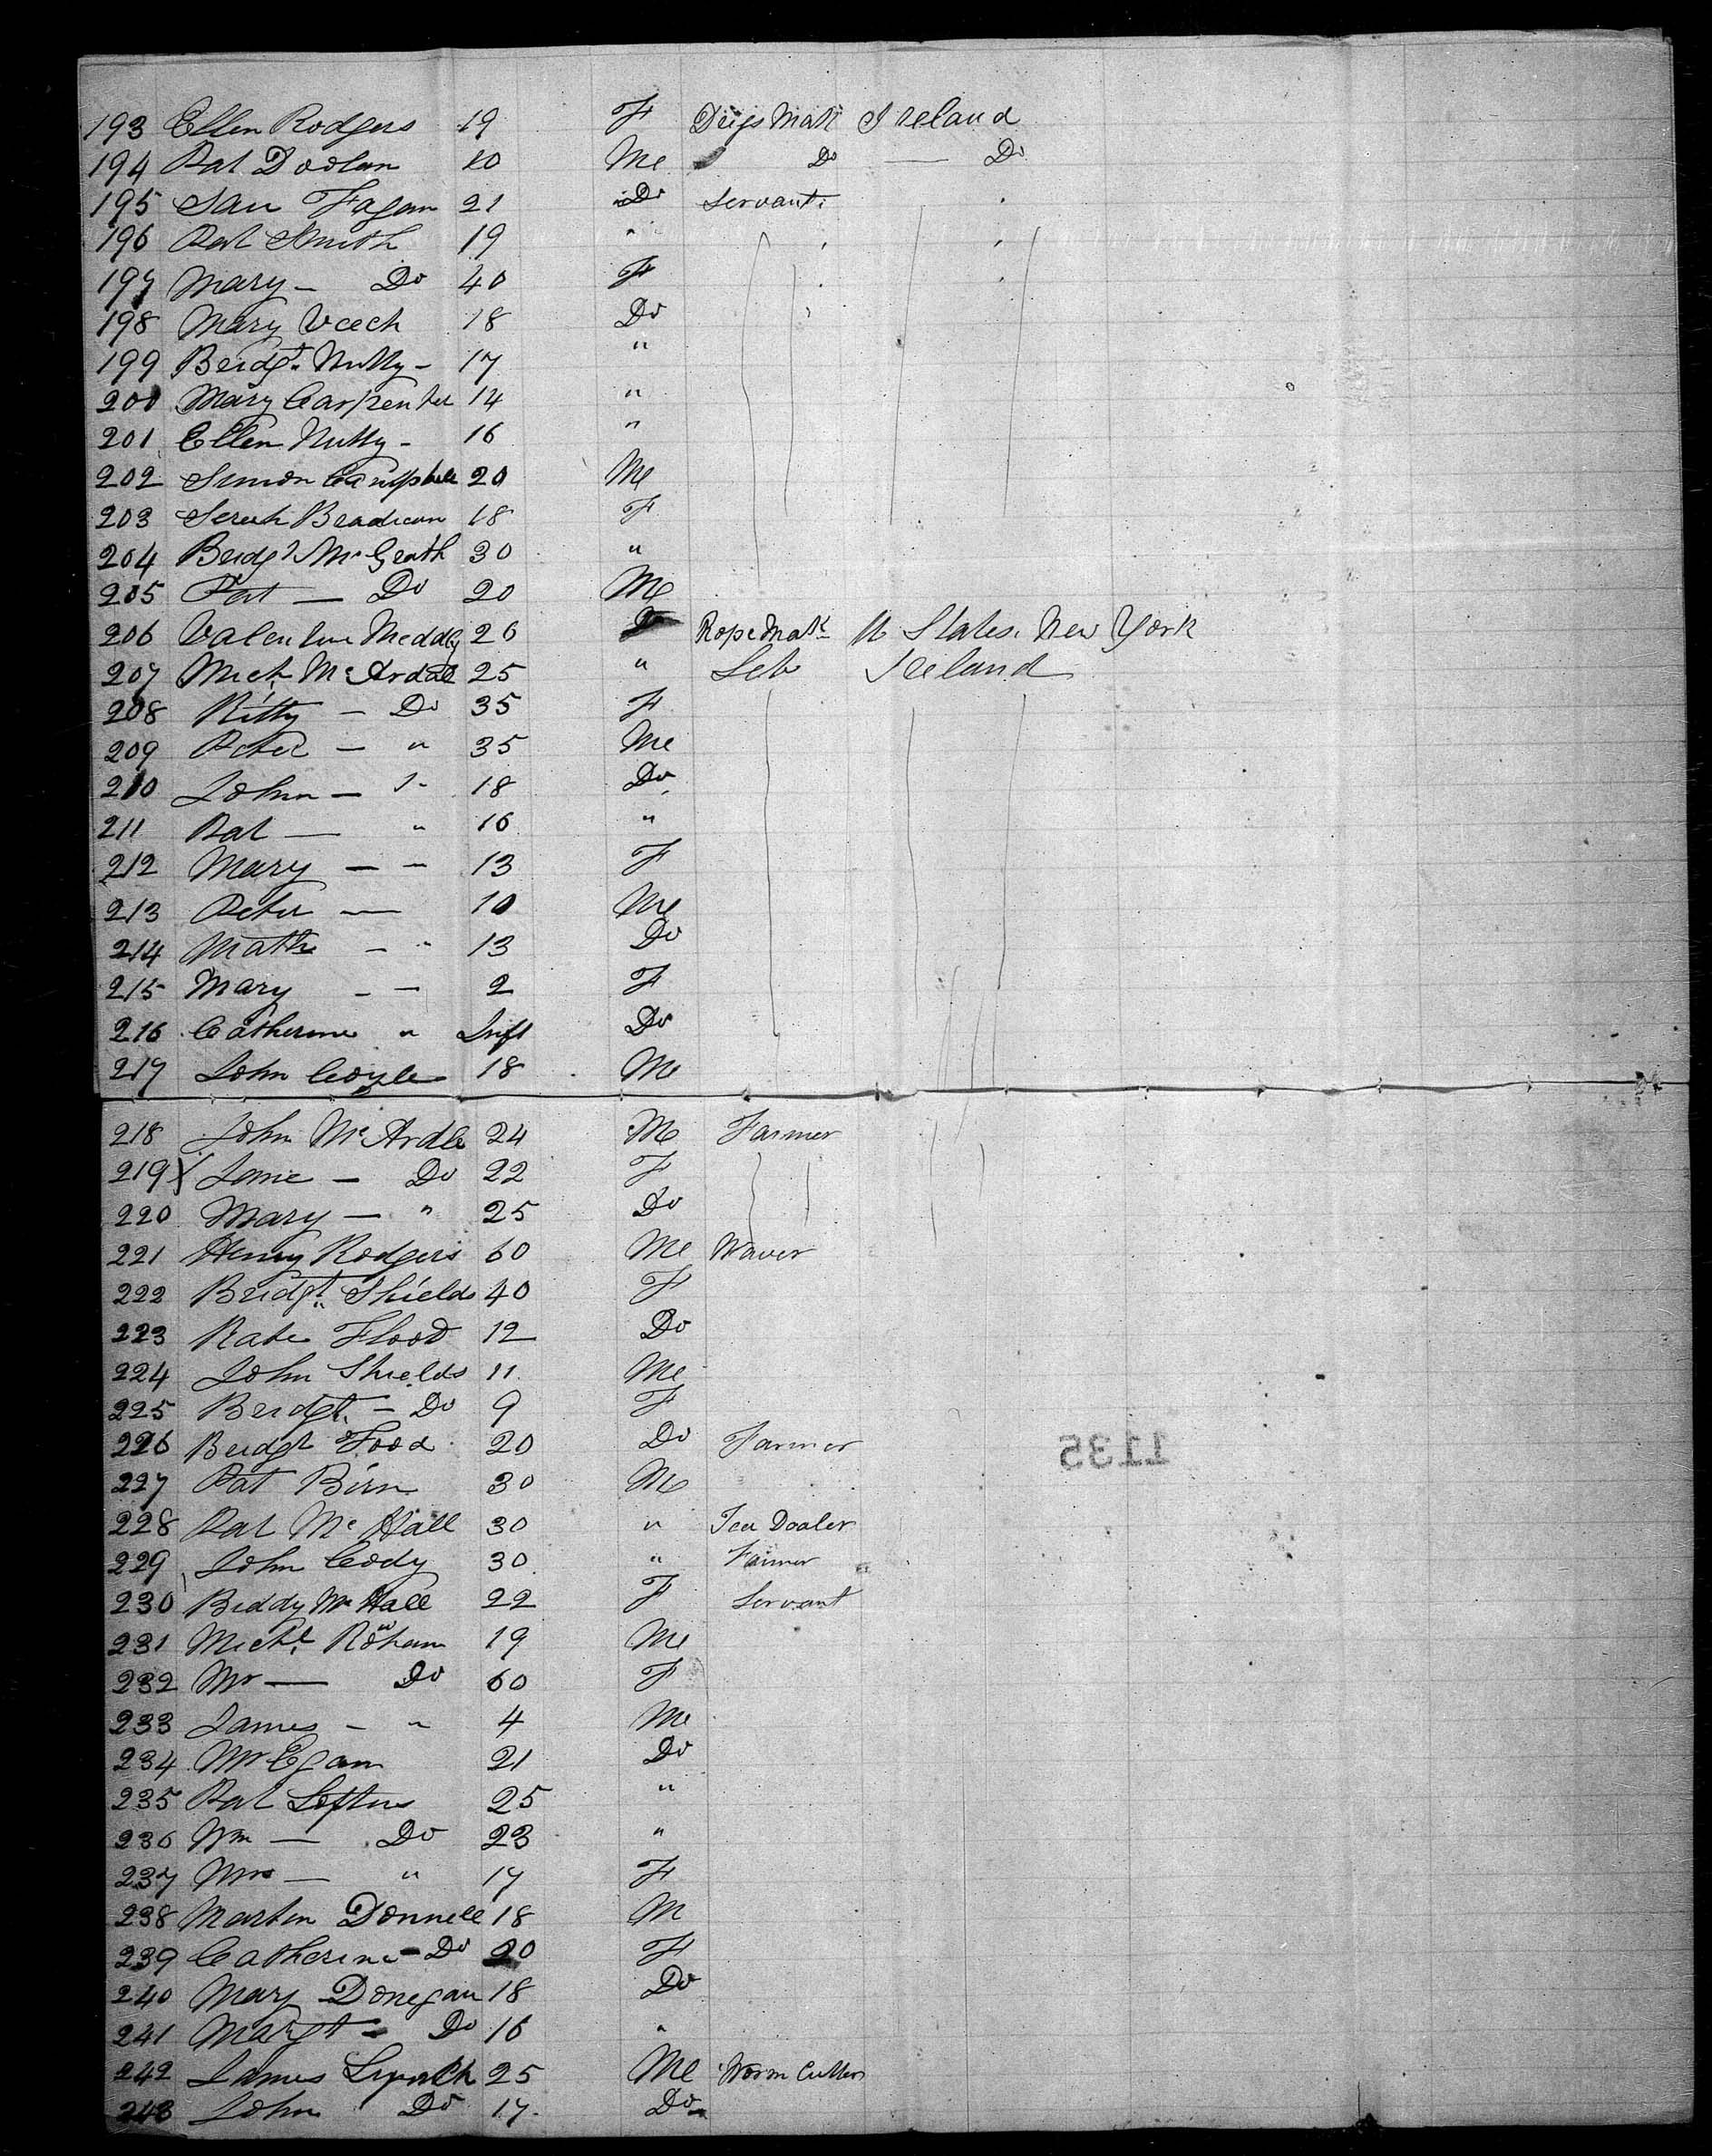 193 Ellen Rodgers 19 F Dress Mak Ireland
194 Pat Doolan 10 Me Do — Do
195 Fagan 21 Do Servant
196 Pat Smith 19 "
197 Mary — Do 40 F
198 Mary Veech 18 Do
199 Bridgt. Nulty — 17 "
200 Mary Carpenter 14 "
201 Ellen Nulty — 16 "
202 Simon Campbell 20 Me
203 18 F
204 Bridgt McGrath 30 "
205 Pat — Do 20 Me
206 Valentine Meddley 26 Do Ropemakr U States. New York
207 Mich McArdal 25 " Lab Ireland
208 Kitty — Do 35 F
209 Peter — " 35 Me
210 John — " 18 Do
211 Pat — " 16 "
212 Mary — " 13 F
213 Peter — 10 Me
214 Mathw — " 13 Do
215 Mary — — 2 F
216 Catherine " Inft Do
217 John Coyle 18 Me
218 John McArdle 24 Me Farmer
219 X Jane — Do 22 F
220 Mary — " 25 Do
221 Henry Rodgers 60 Me Waver
222 Bridgt. Shields 40 F
223 Kate Flood 12 Do
224 John Shields 11 Me
225 Bridgt. — Do 9 F
226 Bridgt Flood 20 Do Farmer
227 Pat Birn 30 Me
228 Pat McHall 30 " Tea Dealer
229 John Cody 30 " Farmer
230 Biddy McHall 22 F Servant
231 Michl. Rohan 19 Me
232 Mr — Do 60 F
233 James — " 4 Me
234 Mr Egan 21 Do
235 Pat Loftus 25 "
236 Wm — Do 23 "
237 Mrs — " 17 F
238 Martin Donnell 18 M
239 Catherine — Do 20 F
240 Mary Donegan 18 Do
241 Margt — Do 16 "
242 James Lynch 25 Me Worm Cutter
243 John Do 17 Do
1135